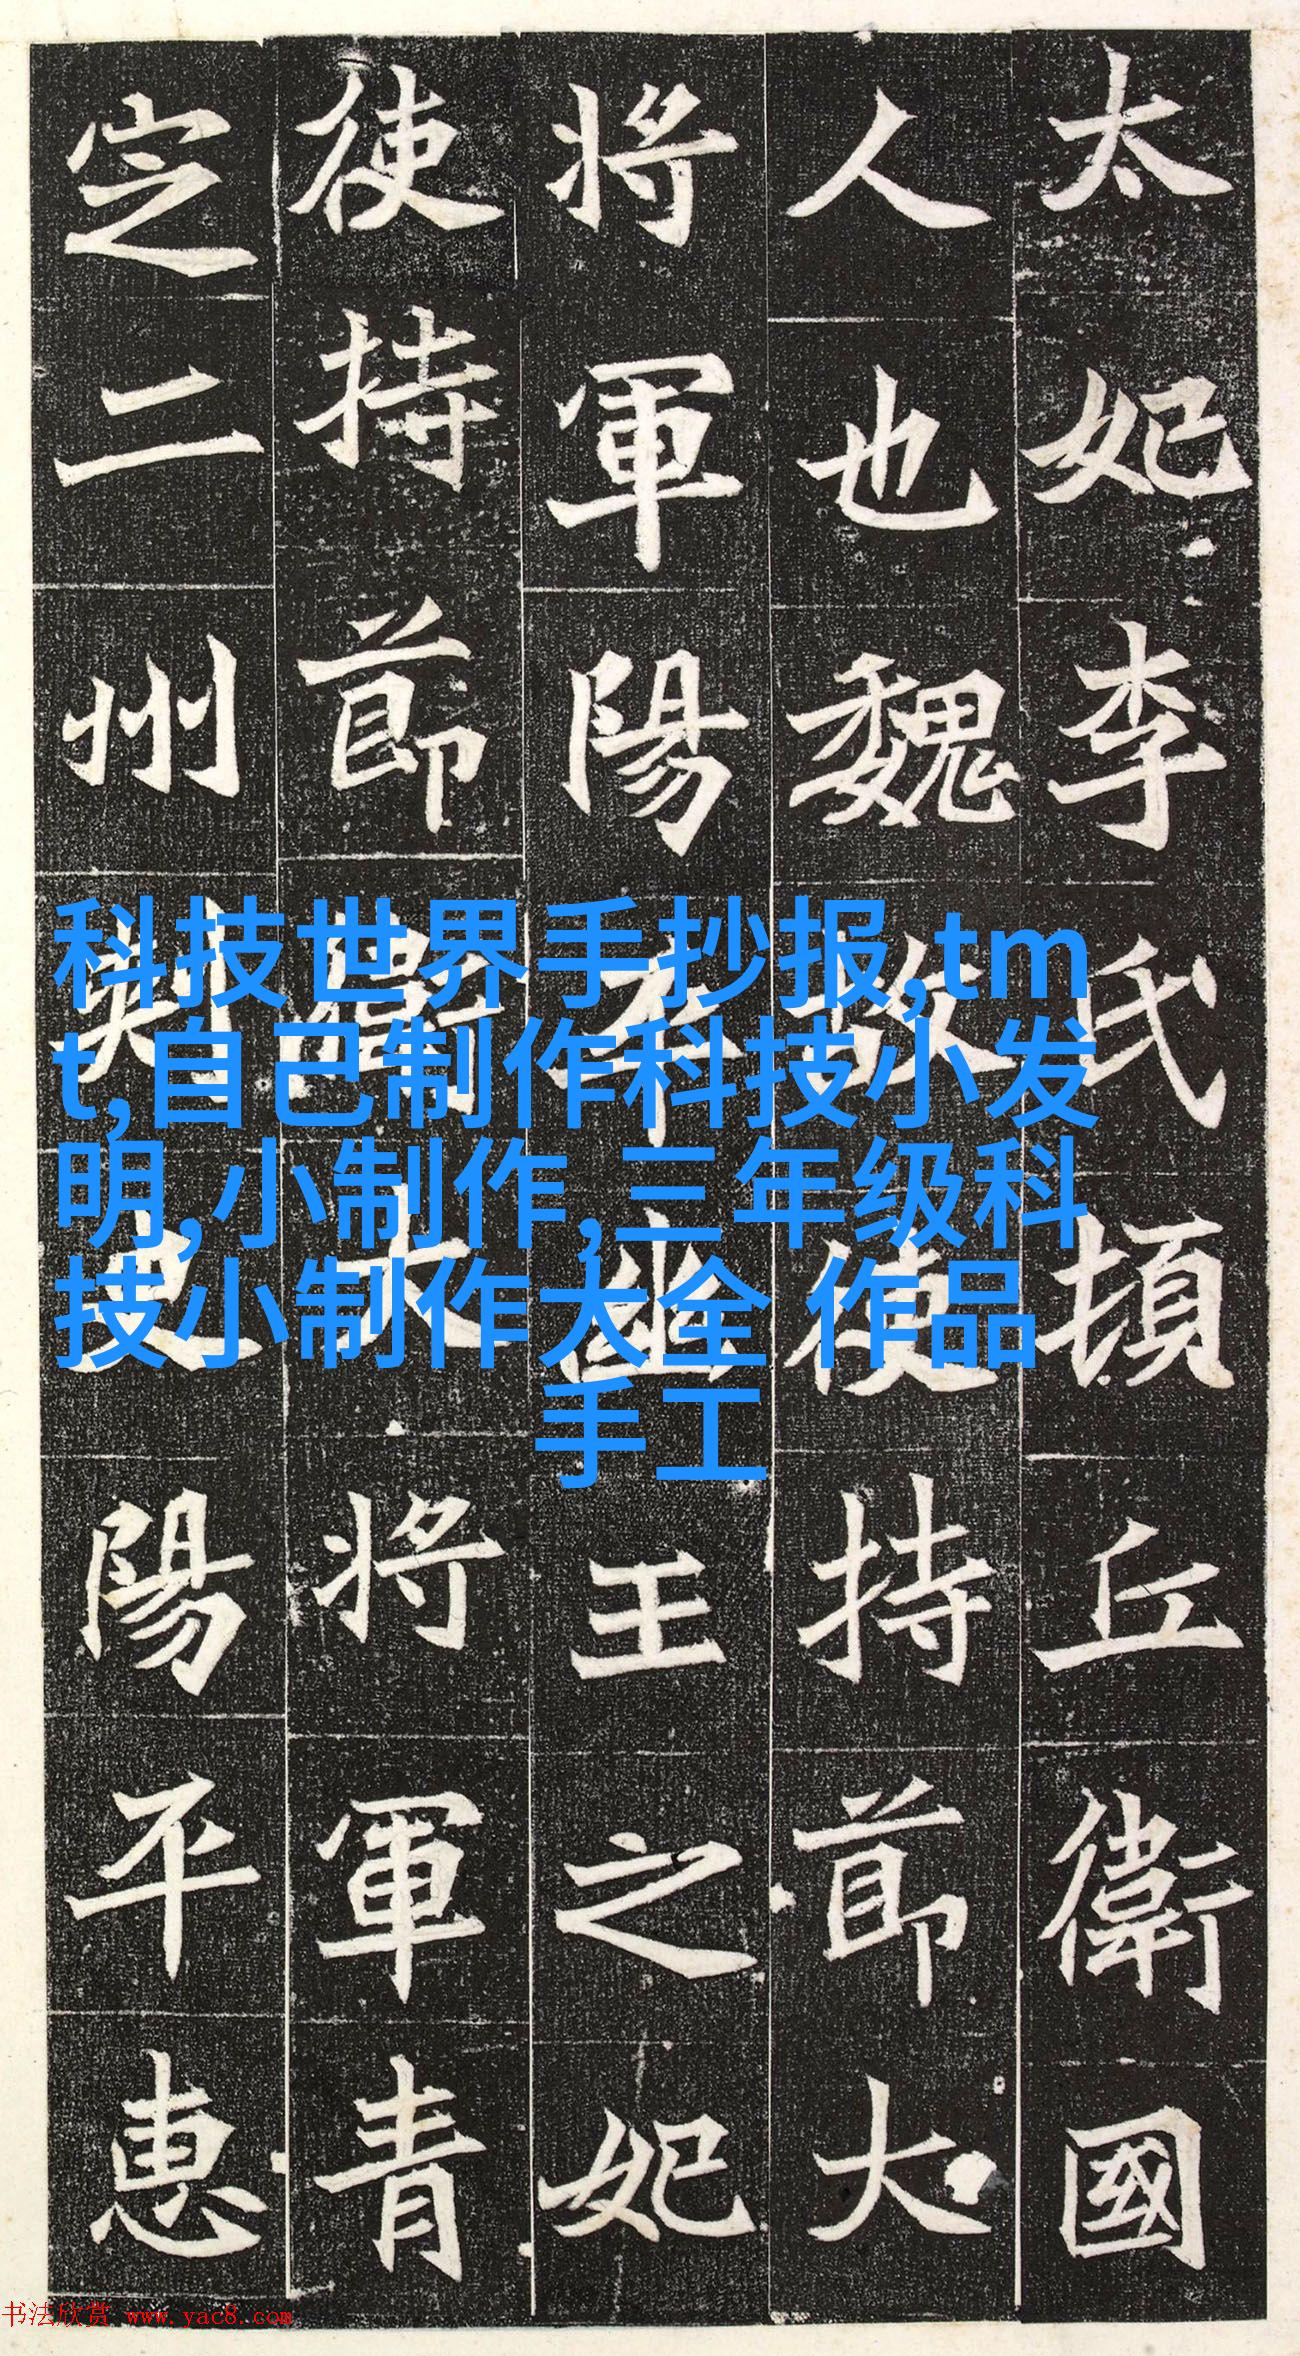 太妃李氏頓丘衛國
人也魏故使持節大
將軍陽平幽王之妃
使持節衛大將軍青
定二州刺史陽平惠
科技世界手抄报,tm
t,自己制作科技小发
明,小制作,三年级科
技小制作大全 作品
手工
书法欣赏 www.yac8.com